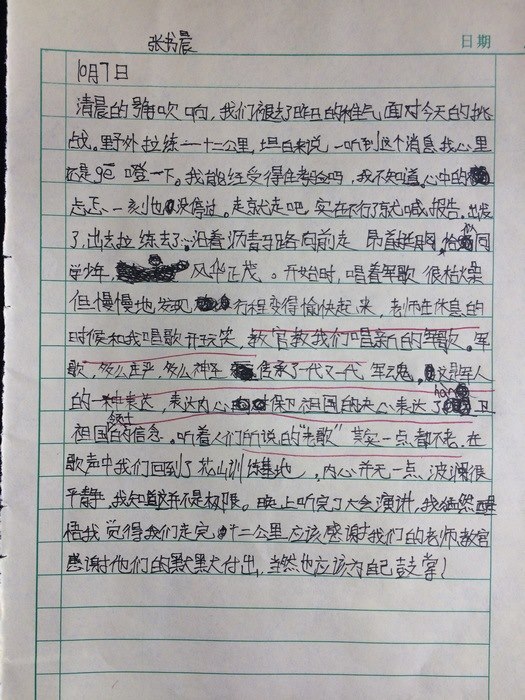 张书晨
日期
10月7日
清晨的号吹响，我们褪去了昨日的稚气，面对今天的挑
战。野外拉练——十二公里，坦白来说，一听到这个消息我心里
还是gē噔一下。我能经受得住考验吗，我不知道。心中的
忐忑一刻也没停过。走就走吧，实在不行了就喊报告。出发
了，出去拉练去了，沿着沥青马路向前走，昂首挺胸，恰似同
学少年，风华正茂。开始时，唱着军歌很枯燥
但慢慢地发现行程变得愉快起来，老师在休息的
时候和我唱歌开玩笑，教官教我们唱新的军歌。军
歌，多么庄严，多么神圣，传承了一代又一代军魂，这是军人
的一种表达，表达内心保卫祖国的决心表达了hàn卫
祖国领土的信念。听着人们所说的“老歌”其实一点都不老。在
歌声中我们回到了花山训练基地，内心并无一点波澜很
平静，我知道这并不是极限。晚上听完了大会演讲，我猛然醒
悟我觉得我们走完十二公里应该感谢我们的老师教官
感谢他们的默默付出，当然也应该为自己鼓掌！